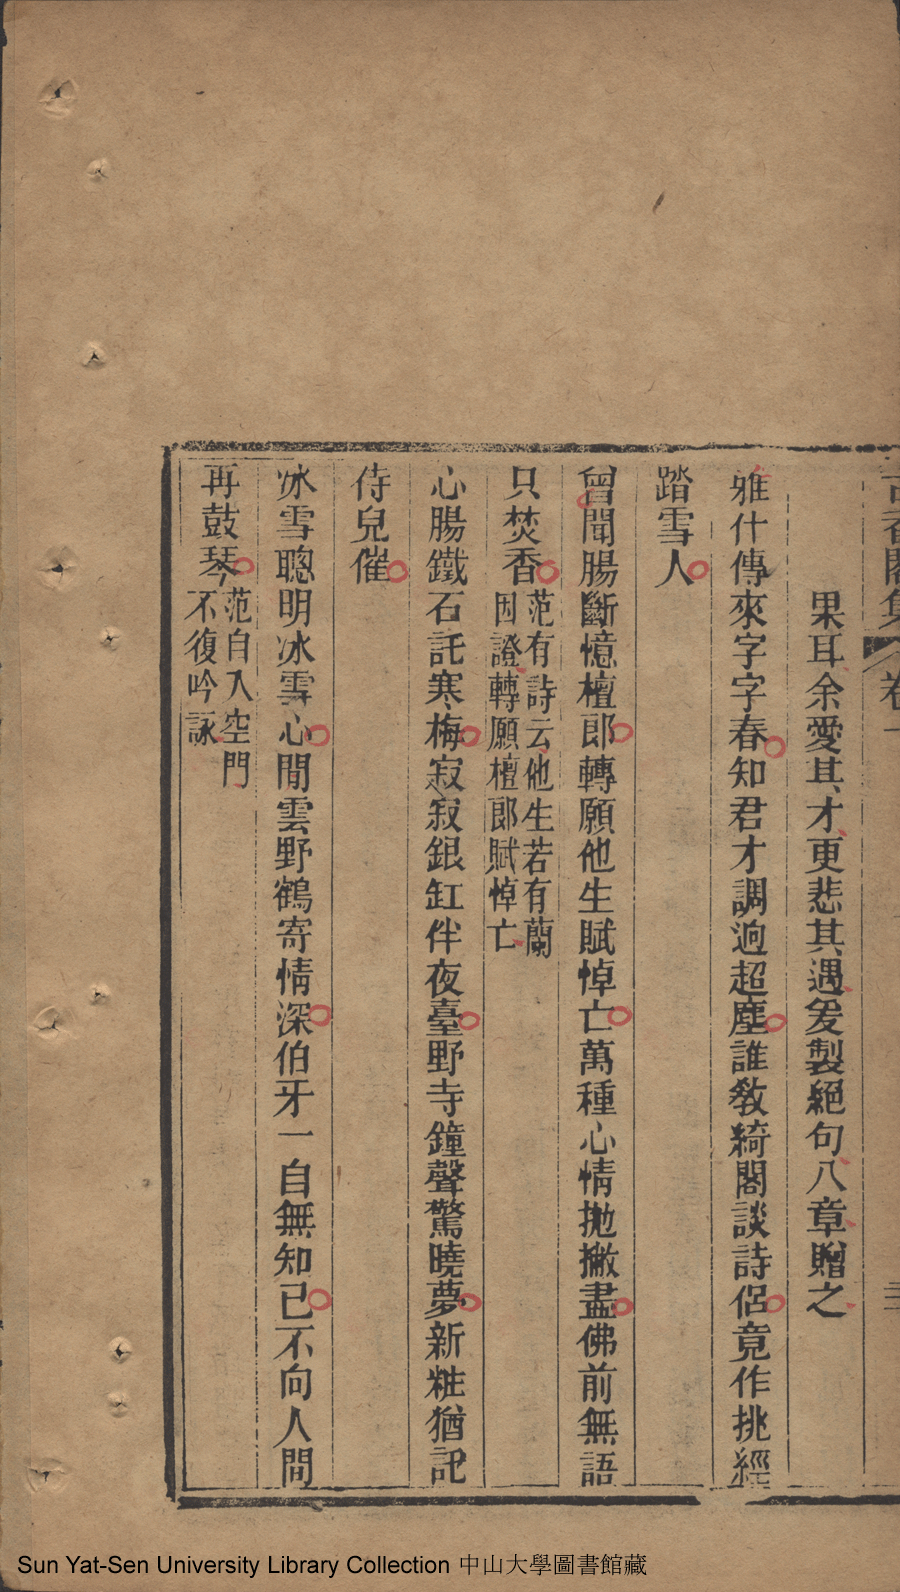 果耳余愛其才更悲其遇爰製絕句八章贈之
雅什傳來字字春知君才調迥超塵誰教綺閣談詩侶竟作挑經
踏雪人
曾聞腸斷憶檀郎轉願他生賦悼亡萬種心情拋撇盡佛前無語
只焚香范有詩云他生若有蘭
因證轉願檀郎賦悼亡
心腸鐵石託寒梅寂寂銀缸伴夜臺野寺鐘聲驚曉夢新粧猶記
侍兒催
冰雪聰明冰雪心閒雲野鶴寄情深伯牙一自無知己不向人間
再鼓琴范自入空門
不復吟詠
Sun Yat-Sen University Library Collection 中山大學圖書館藏